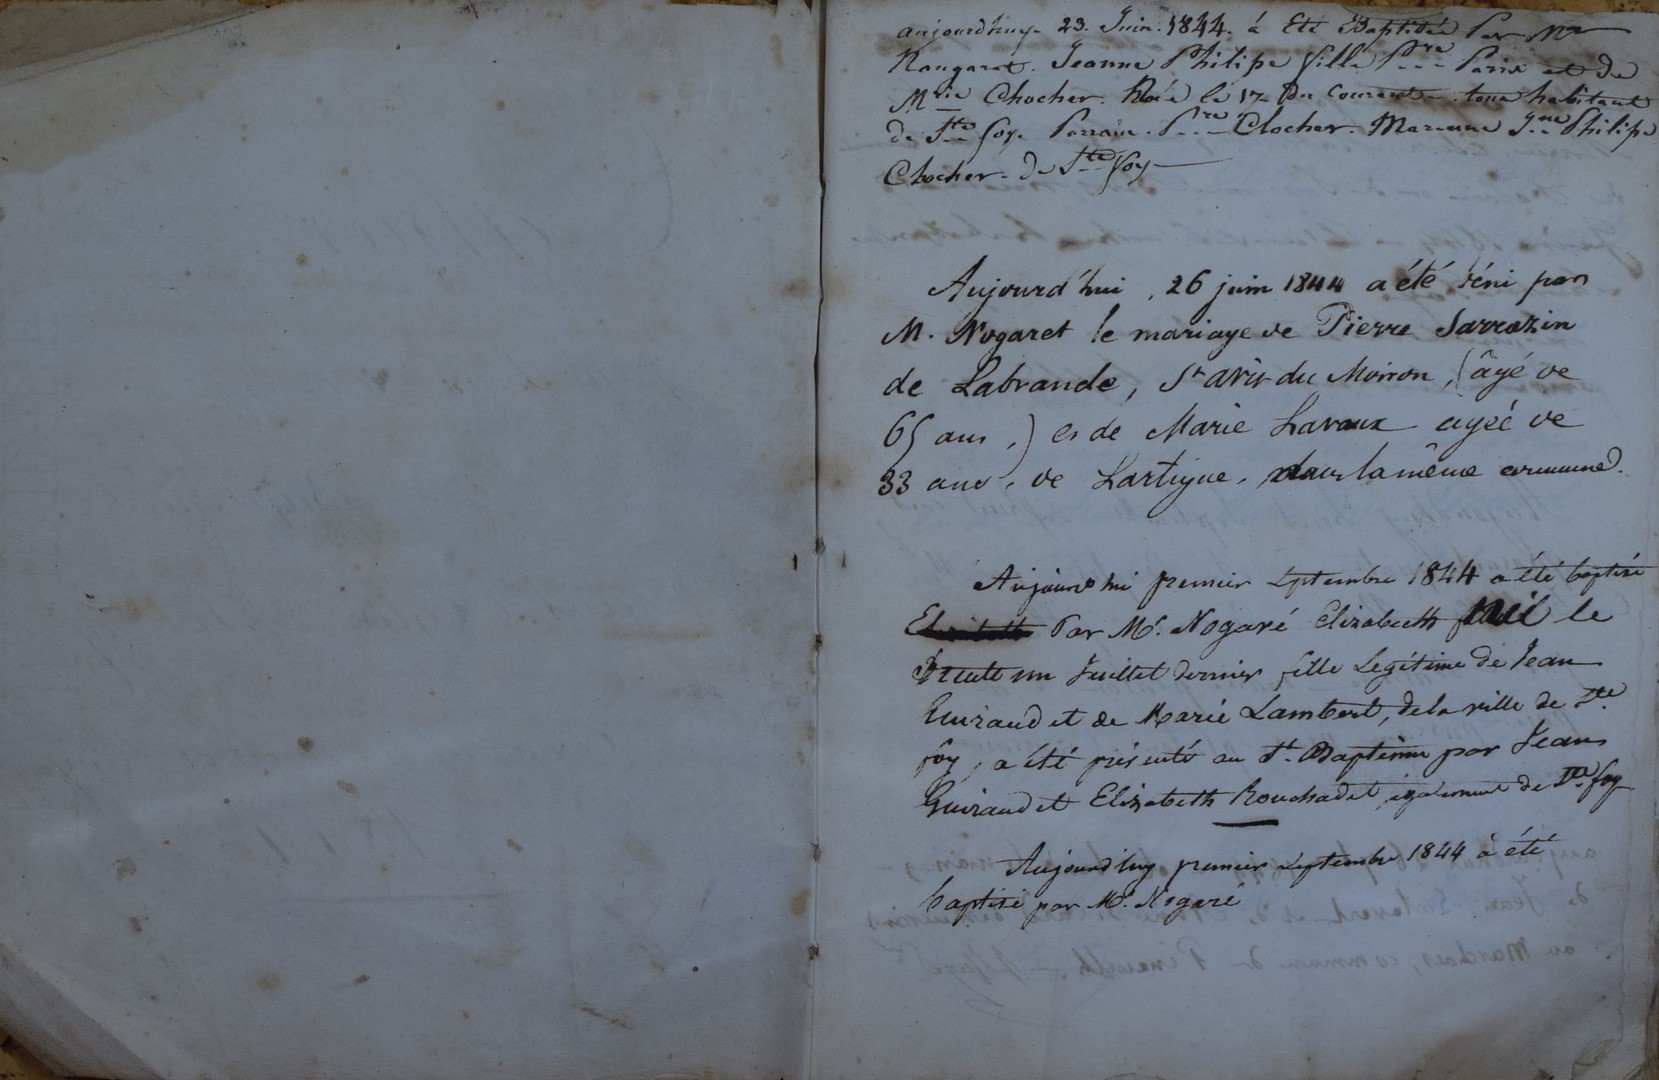 aujourdhuy 23. Juin. 1844. á Eté Baptisée Par Mr
Nougaret. Jeanne Philipe fille Pre Paris et de
Mrie Chocher. Née le 17 du Courant. tous habitant
de Ste foy. Parrain. Pre Clocher. Maraine Jne Philipe
Clocher. de Ste foy
Aujourd'hui, 26 juin 1844 a été béni par
M. Nogaret le mariage de Pierre Sarrazin
de Labrande, St avit du Moiron, (âgé de
65 ans,) et de Marie Lavaux agéé de
33 ans, de Lartigue, dans la même commune.
Aujourd hui premier Septembre 1844 a été baptisé
Par Mr. Nogaré Elizabeth née le
trente un Juillet dernier fille Legitime de Jean
Guiraud et de Marie Lambert, de la ville de Ste
foy, a été présenté au St. Baptême par Jean
Guiraud et Elizabeth Rouchadet, également de Ste foy
Aujourd'huy premier Septembre 1844 à été
baptisé par Mr. Nogaré